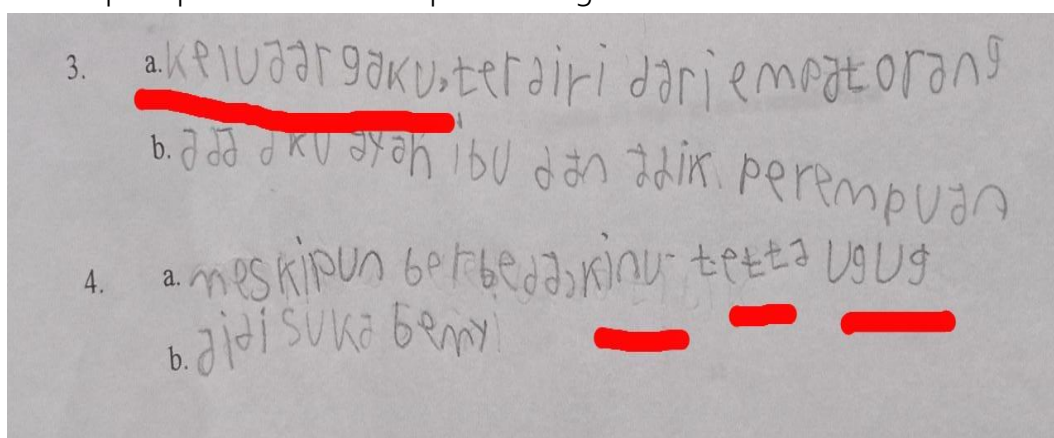 3. a. keluaargaku, terdiri dari empat orang
b. ada aku ayah ibu dan adik perempuan
4. a. meskipun berbeda, kinu tetta ugug
b. didi suka bemyi